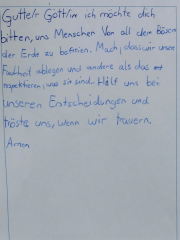 Gutte/r Gott/in ich möchte dich
bitten, uns Menschen Von all dem Bösen
der Erde zu befreien. Mach, dass wir unsere
Faulheit ablegen und andere als das
respektieren, was sie sind. Hilf uns bei
unseren Entscheidungen und
tröste uns, wenn wir trauern.
Amen